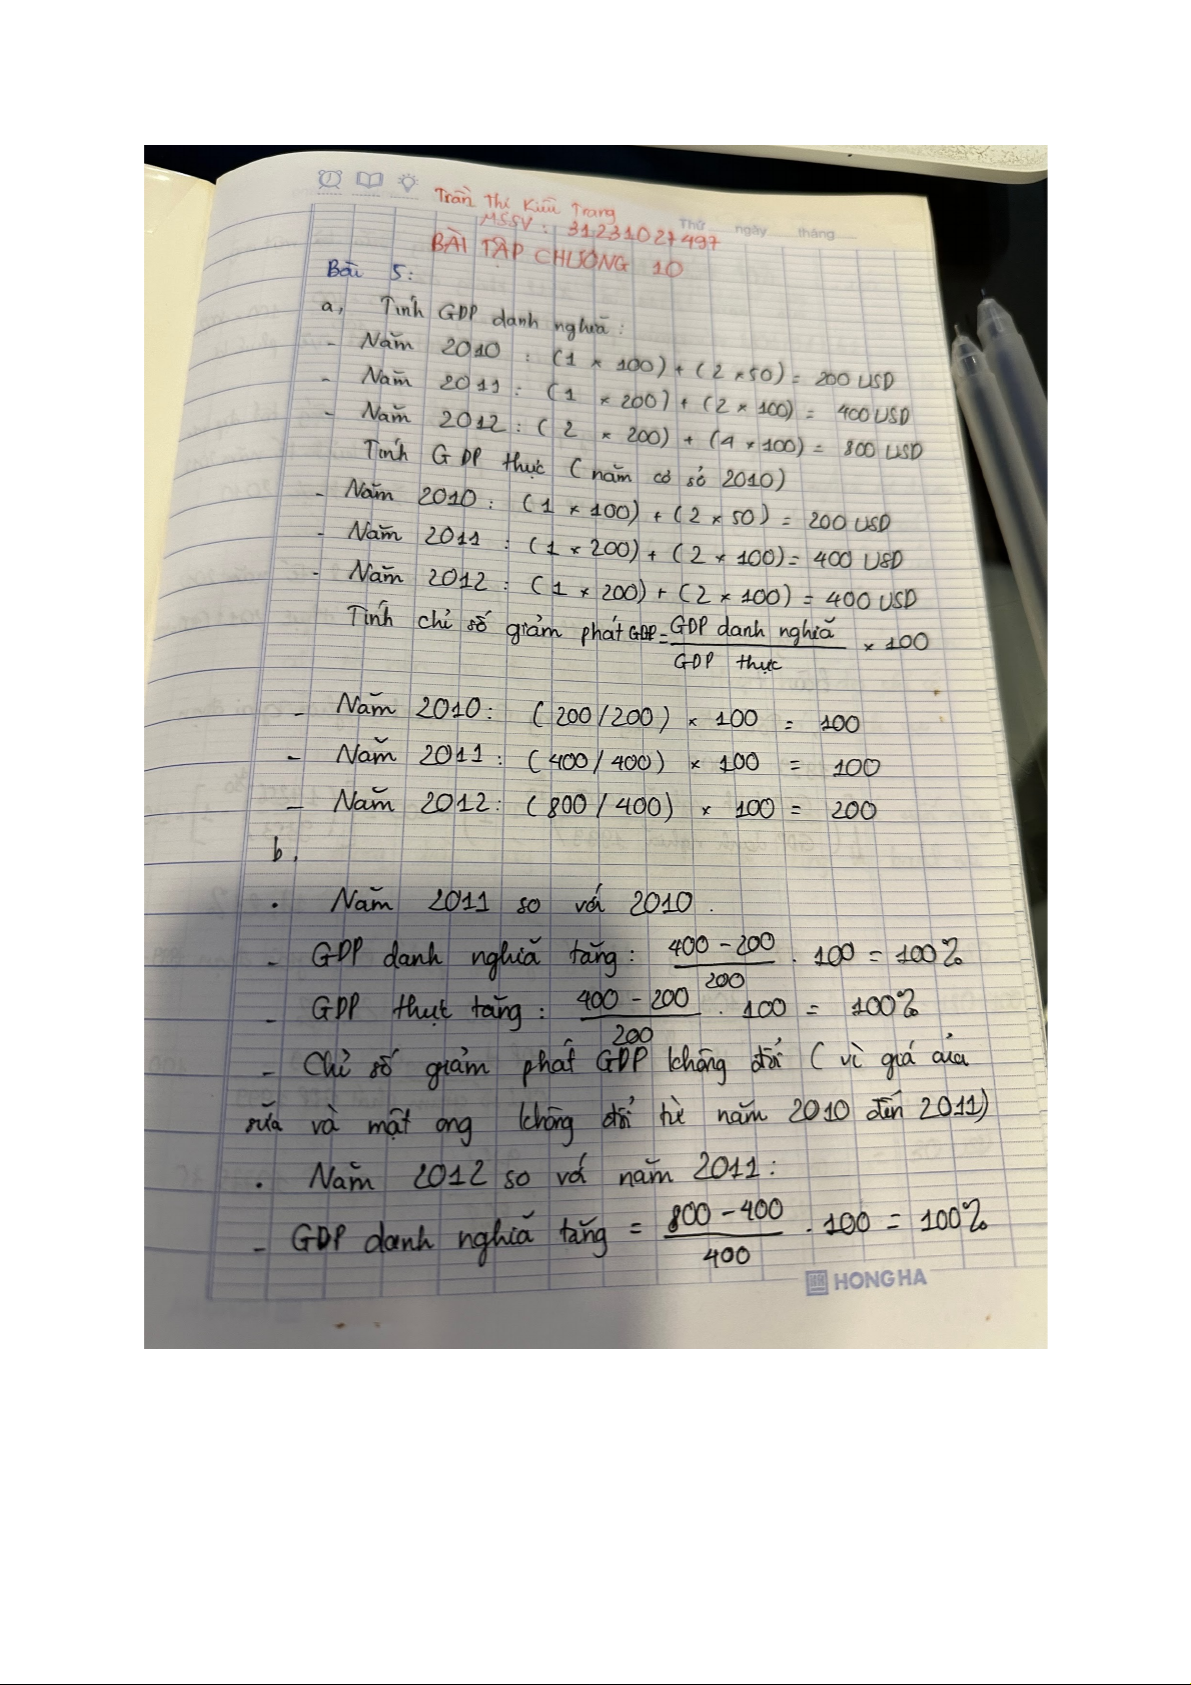 Trần Thị Kiều Trang
MSSV : 31231027497
Thứ ngày tháng
BÀI TẬP CHƯƠNG 10
Bài 5:
a, Tính GDP danh nghĩa:
- Năm 2010 : (1 × 100) + (2 × 50) = 200 USD
- Năm 2011 : (1 × 200) + (2 × 100) = 400 USD
- Năm 2012 : (2 × 200) + (4 × 100) = 800 USD
Tính GDP thực (năm cơ sở 2010)
- Năm 2010 : (1 × 100) + (2 × 50) = 200 USD
- Năm 2011 : (1 × 200) + (2 × 100) = 400 USD
- Năm 2012 : (1 × 200) + (2 × 100) = 400 USD
Tính chỉ số giảm phát GDP = GDP danh nghĩa / GDP thực × 100
- Năm 2010: (200/200) × 100 = 100
- Năm 2011: (400/400) × 100 = 100
- Năm 2012: (800/400) × 100 = 200
b,
. Năm 2011 so với 2010.
- GDP danh nghĩa tăng: 400 - 200 / 200 . 100 = 100%
- GDP thực tăng: 400 - 200 / 200 . 100 = 100%
- Chỉ số giảm phát GDP không đổi (vì giá của
sữa và mật ong không đổi từ năm 2010 đến 2011)
. Năm 2012 so với năm 2011:
- GDP danh nghĩa tăng = 800 - 400 / 400 . 100 = 100%
HONG HA